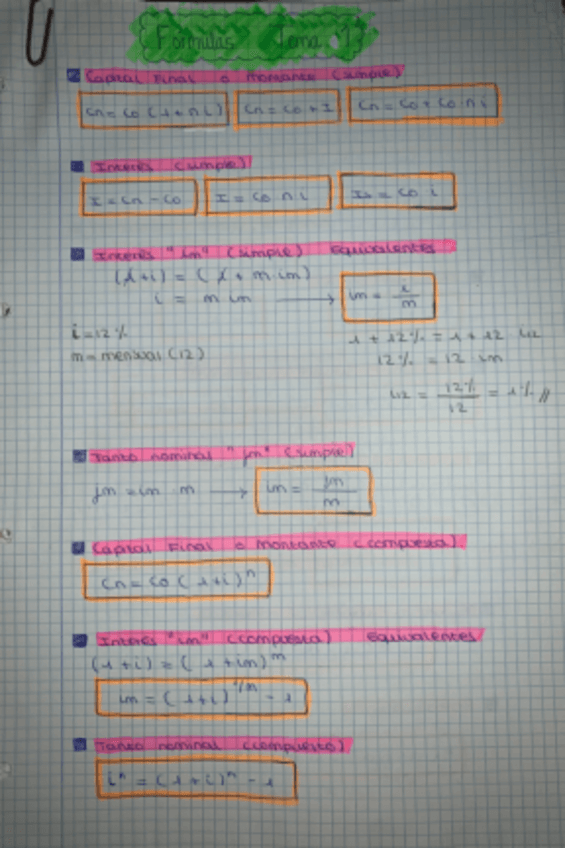 Fórmulas Tema 1
Capital Final o Montante (simple)
Cn = Co (1 + n i) Cn = Co + I Cn = Co + Co · n · i
Interés (simple)
I = Cn - Co I = Co · n · i Is = Co · i
Interés "im" (simple) Equivalentes
(1 + i) = (1 + m im)
i = m im → im = i/m
i = 12%
m = mensual (12)
1 + 12% = 1 + 12 i12
12% = 12 im
i12 = 12%/12 = 1% //
Tanto nominal "jm" (simple)
jm = im · m → im = jm/m
Capital Final o Montante (compuesta).
Cn = Co (1 + i)^n
Interés "im" (compuesta) Equivalentes
(1 + i) = (1 + im)^m
im = (1 + i)^1/m - 1
Tanto nominal (compuesto)
i^n = (1 + i)^n - 1